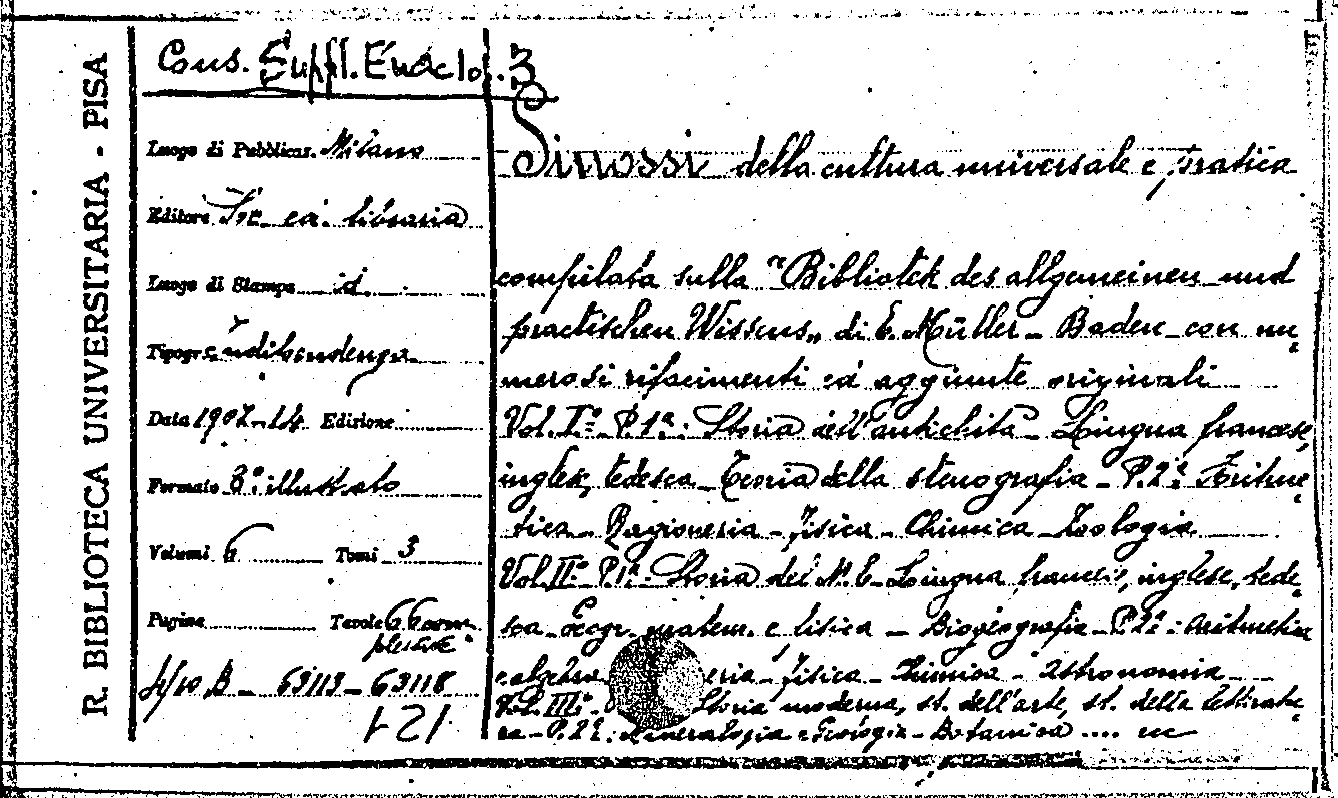 R. BIBLIOTECA UNIVERSITARIA - PISA
Cons. Suppl. Enciclop. 3
Luogo di Pubblicaz. Milano
Editore Soc. ed. libraria
Luogo di Stampa id.
Tipogr. Indipendenza
Data 1907-14 Edizione
Formato 8º illustrato
Volumi 6 Tomi 3
Pagine Tavole 66 com
plessive
B - 63113 - 63118
121
Sinossi della cultura universale e pratica
compilata sulla "Bibliotek des allgemeinen und
practischen Wissens„ di E. Müller - Baden con nu
merosi rifacimenti ed aggiunte originali
Vol. Iº - P. 1ª: Storia dell'antichità - Lingua francese,
inglese, tedesca - Teoria della stenografia - P. 2ª: Aritme
tica - Ragioneria - fisica - Chimica - Zoologia
Vol. IIº P. 1ª: Storia del M. E. - Lingua francese, inglese, tede
sca - Geogr. matem. e fisica - Biogeografia - P. 2ª: Aritmetica
e algebra - fisica - Chimica - Astronomia
Vol. IIIº: Storia moderna, st. dell'arte, st. della letteratu
ra - P. 2ª: Mineralogia e Geologia - Botanica .... ecc